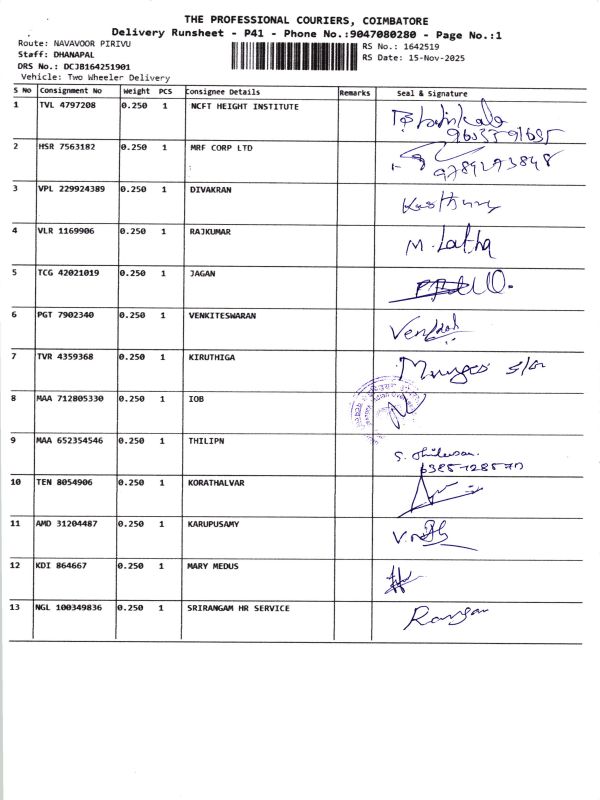 THE PROFESSIONAL COURIERS, COIMBATORE
Delivery Runsheet - P41 - Phone No.:9047080280 - Page No.:1
Route: NAVAVOOR PIRIVU
RS No.: 1642519
Staff: DHANAPAL
RS Date: 15-Nov-2025
DRS No.: DCJB164251901
Vehicle: Two Wheeler Delivery
S No Consignment No Weight PCS Consignee Details Remarks Seal & Signature
1 TVL 4797208 0.250 1 NCFT HEIGHT INSTITUTE
2 HSR 7563182 0.250 1 MRF CORP LTD
9789293848
3 VPL 229924389 0.250 1 DIVAKRAN
4 VLR 1169906 0.250 1 RAJKUMAR M. Latha
5 TCG 42021019 0.250 1 JAGAN
6 PGT 7902340 0.250 1 VENKITESWARAN
7 TVR 4359368 0.250 1 KIRUTHIGA
8 MAA 712805330 0.250 1 IOB
9 MAA 652354546 0.250 1 THILIPN
10 TEN 8054906 0.250 1 KORATHALVAR
11 AMD 31204487 0.250 1 KARUPUSAMY
12 KDI 864667 0.250 1 MARY MEDUS
13 NGL 100349836 0.250 1 SRIRANGAM HR SERVICE Rangan